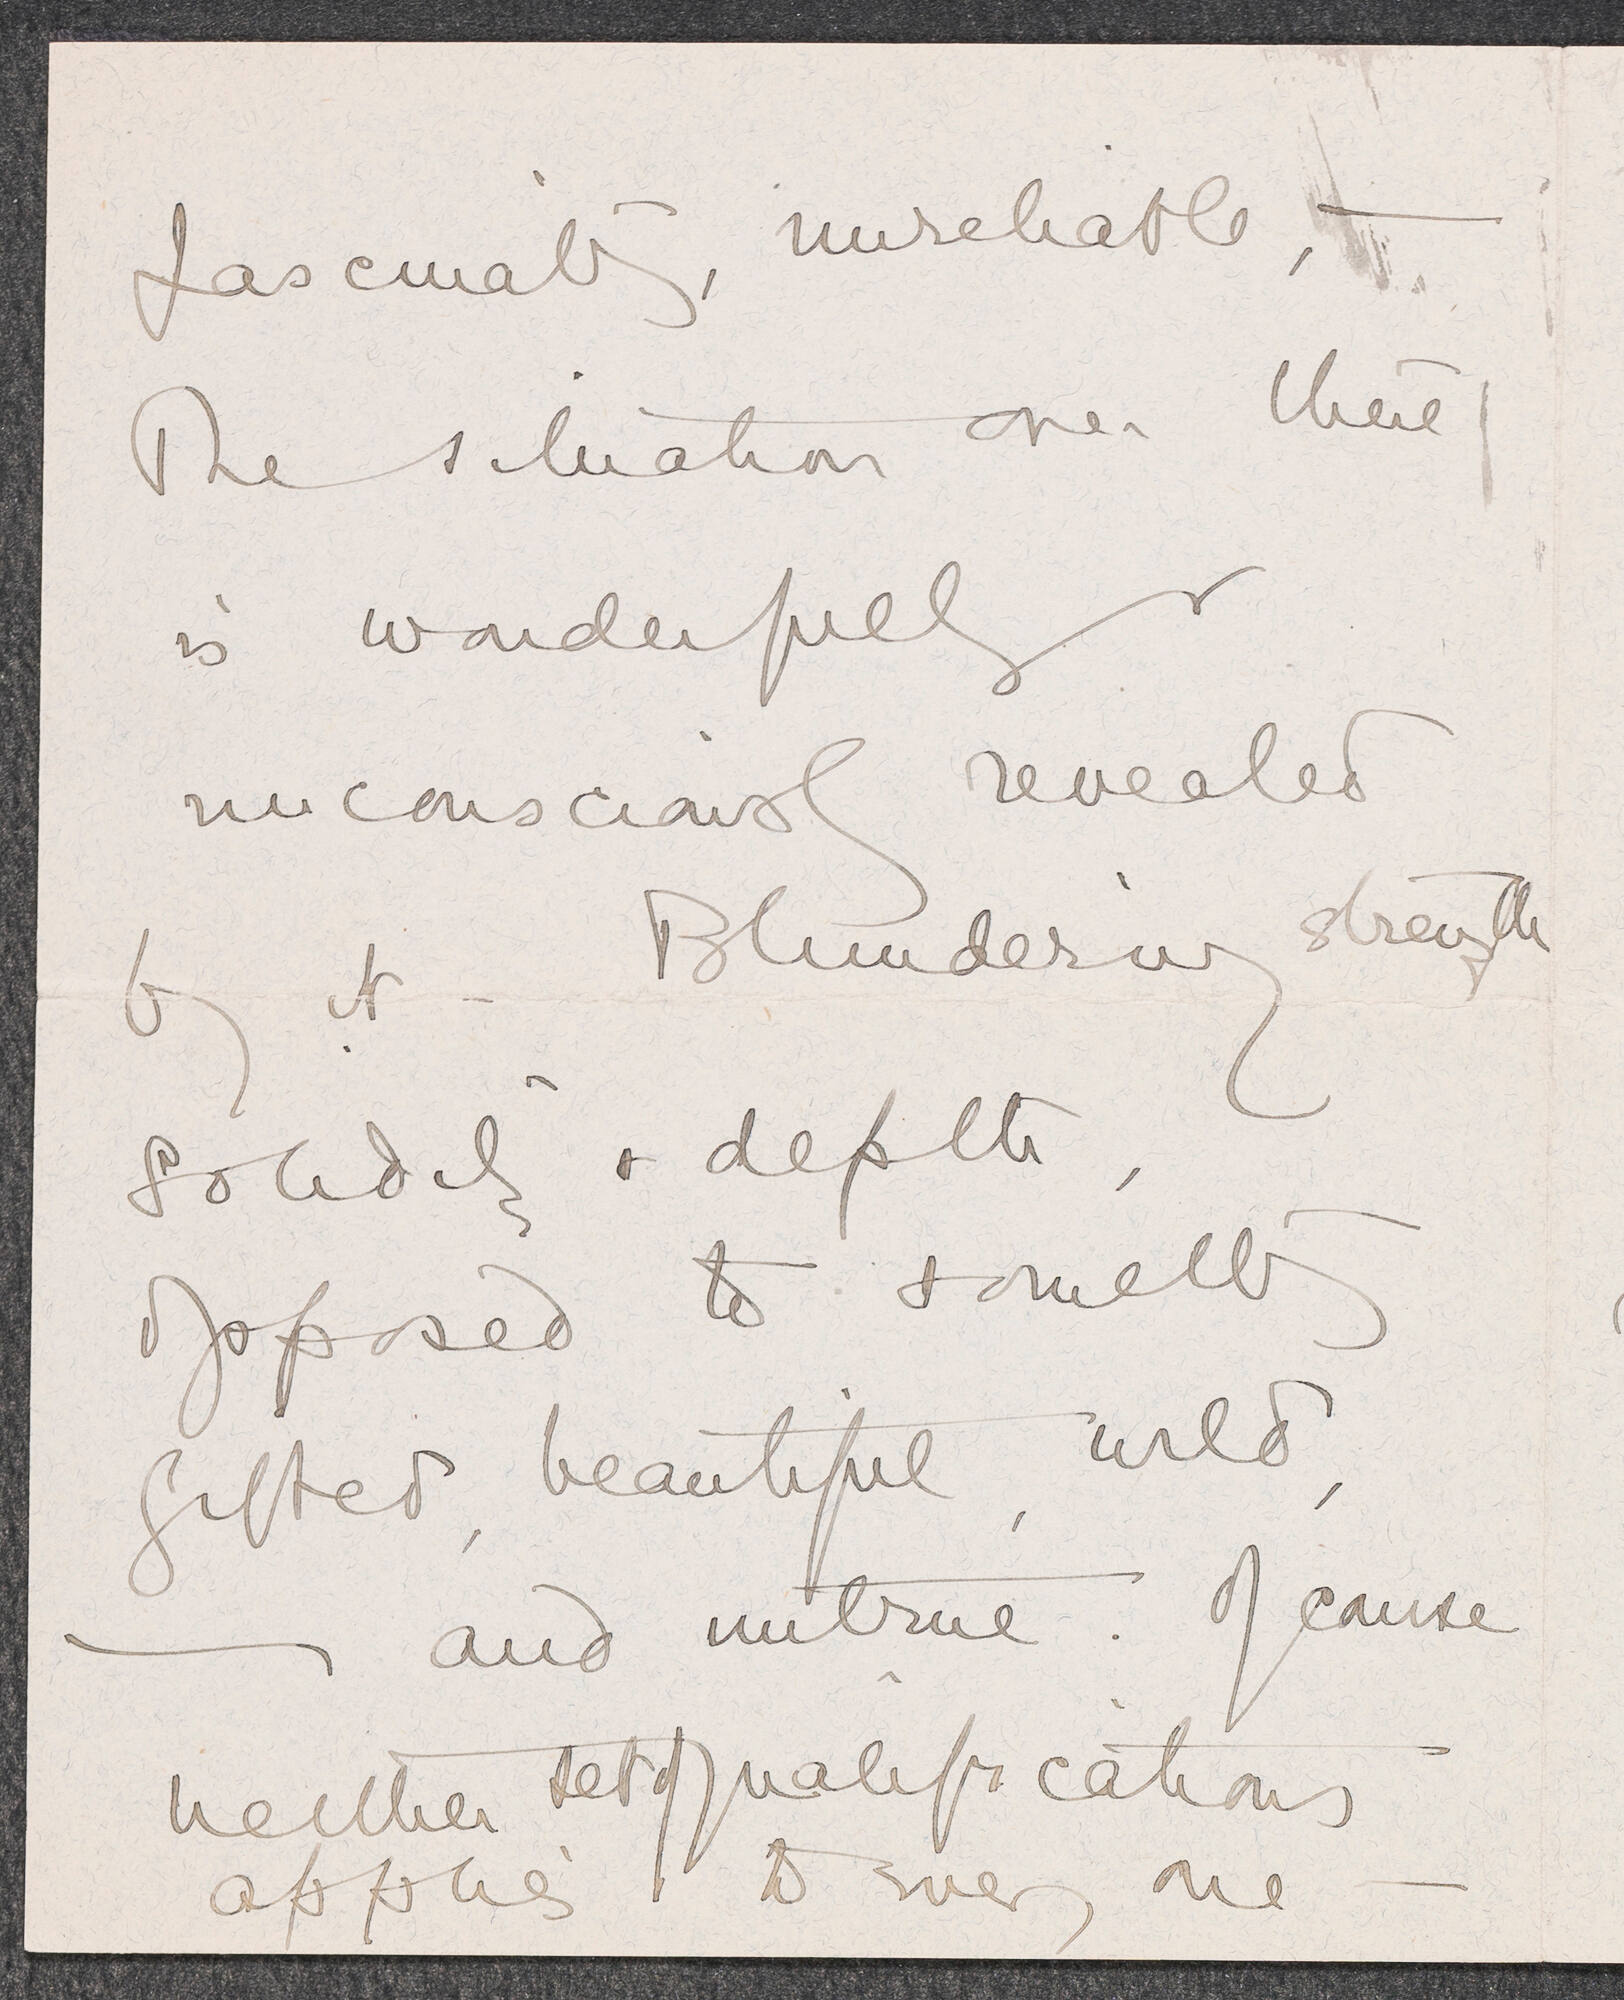 fascinating, unreliable, —
The situation over there
is wonderfully &
unconsciously revealed
by it - Blundering strength
solidity & depth,
opposed to something
gifted, beautiful, wild,
— and untrue. Of course
neither set of qualifications
applies to every one —